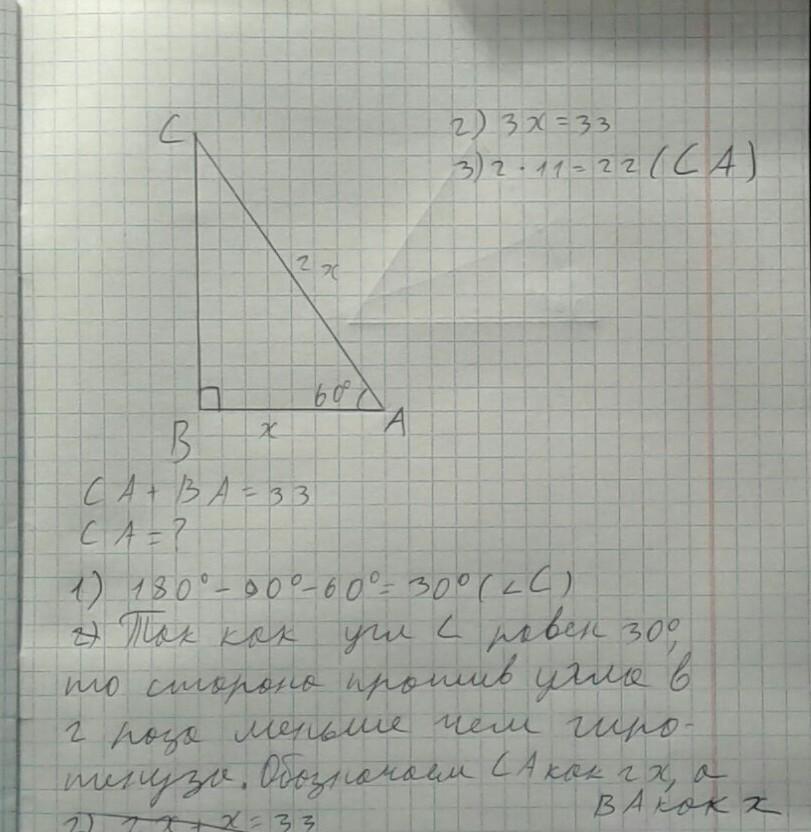 C
2) 3x = 33
3) 2 · 11 = 22 (CA)
2x
60°
B
x
A
CA + BA = 33
CA = ?
1) 180° - 90° - 60° = 30° (∠C)
2) Так как угл C равен 30°,
то сторона против угла в
2 раза меньше чем гипо-
тенуза. Обозначаем CA как 2x, а
BA как x
2) 2x + x = 33